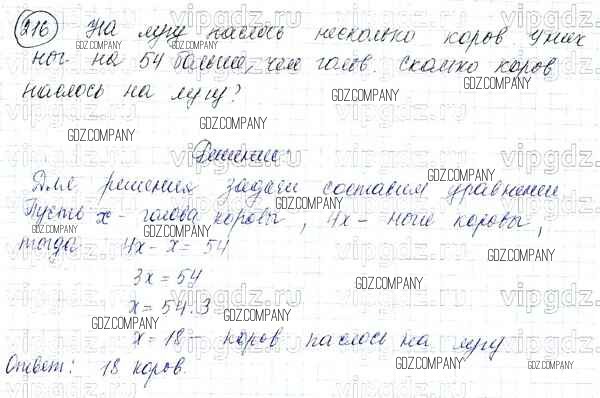 216 На лугу паслось несколько коров У них
ног на 54 больше, чем голов. Сколько коров
паслось на лугу?
Решение:
Для решения задачи составим уравнение
Пусть x - голова коровы, 4x - ноги коровы,
тогда 4x - x = 54
3x = 54
x = 54 : 3
x = 18 - коров паслось на лугу
Ответ: 18 коров.
GDZ.COMPANY
vipgdz.ru